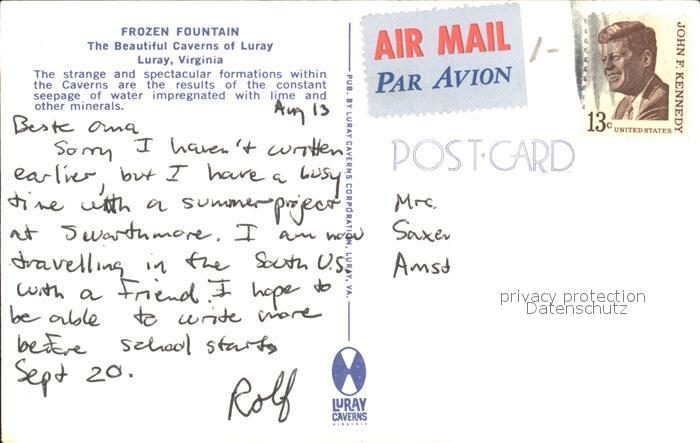 FROZEN FOUNTAIN
The Beautiful Caverns of Luray
Luray, Virginia
The strange and spectacular formations within
the Caverns are the results of the constant
seepage of water impregnated with lime and
other minerals.
Aug 13
Beste oma
Sorry I haven't written
earlier, but I have a busy
time with a summerproject
at Swarthmore. I am now
travelling in the South U.S.
with a friend. I hope to
be able to write more
before school starts
Sept 20.
Rolf
PUB. BY LURAY CAVERNS CORPORATION, LURAY, VA.
LURAY
CAVERNS
VIRGINIA
AIR MAIL
PAR AVION
1-
JOHN F. KENNEDY
13c UNITED STATES
POST CARD
Mrs.
Saxer
Amst
privacy protection
Datenschutz